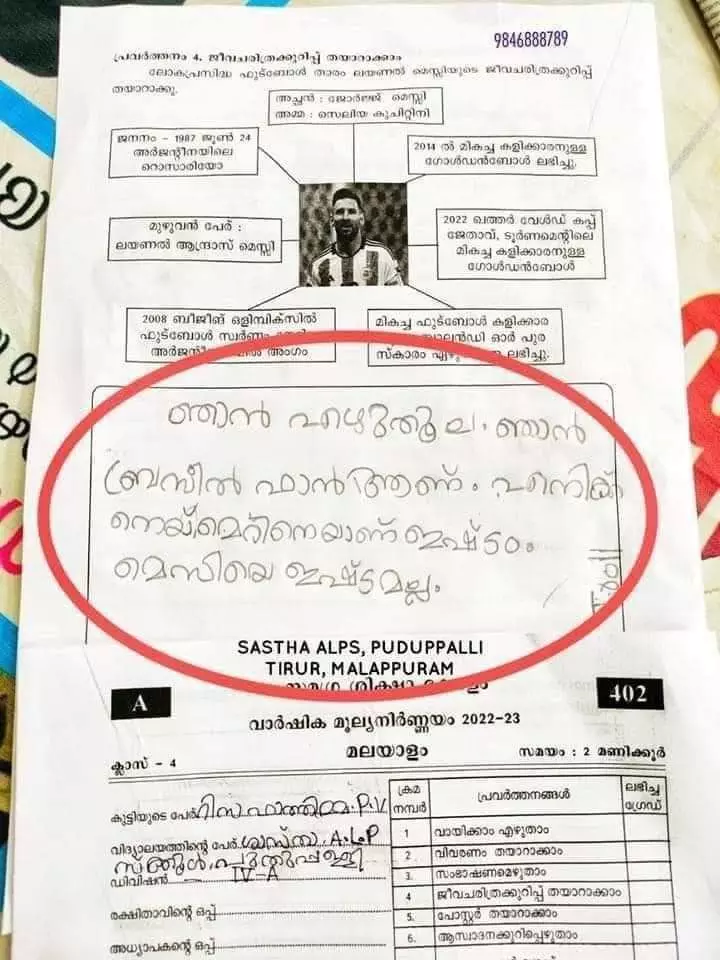 9846888789
പ്രവർത്തനം 4. ജീവചരിത്രക്കുറിപ്പ് തയാറാക്കാം
ലോകപ്രസിദ്ധ ഫുട്ബോൾ താരം ലയണൽ മെസ്സിയുടെ ജീവചരിത്രക്കുറിപ്പ്
തയാറാക്കൂ.
അച്ഛൻ : ജോർജ്ജ് മെസ്സി
അമ്മ : സെലിയ കുചിറ്റിനി
ജനനം - 1987 ജൂൺ 24
അർജന്റീനയിലെ
റൊസാരിയോ
2014 ൽ മികച്ച കളിക്കാരനുള്ള
ഗോൾഡൻബോൾ ലഭിച്ചു.
മുഴുവൻ പേര് :
ലയണൽ ആന്ദ്രാസ് മെസ്സി
2022 ഖത്തർ വേൾഡ് കപ്പ്
ജേതാവ്, ടൂർണമെന്റിലെ
മികച്ച കളിക്കാരനുള്ള
ഗോൾഡൻബോൾ
2008 ബീജീങ് ഒളിമ്പിക്സിൽ
ഫുട്ബോൾ സ്വർണം
അംഗം
മികച്ച ഫുട്ബോൾ കളിക്കാര
ഓർ പുര
സ്കാരം ലഭിച്ചു.
ഞാൻ എഴുതൂല. ഞാൻ
ബ്രസീൽ ഫാൻ ആണ്. എനിക്ക്
നെയ്മെറിനെയാണ് ഇഷ്ടം.
മെസിയെ ഇഷ്ടമല്ല.
SASTHA ALPS, PUDUPPALLI
TIRUR, MALAPPURAM
A
402
വാർഷിക മൂല്യനിർണ്ണയം 2022-23
മലയാളം
ക്ലാസ് - 4
സമയം : 2 മണിക്കൂർ
കുട്ടിയുടെ പേര് റിസ ഫാത്തിമ.P.V
വിദ്യാലയത്തിന്റെ പേര് ശാസ്താ A.L.P
സ്ക്കൂൾ പുതുപ്പള്ളി
ഡിവിഷൻ IV-A
രക്ഷിതാവിന്റെ ഒപ്പ്
അധ്യാപകന്റെ ഒപ്പ്
ക്രമ നമ്പർ പ്രവർത്തനങ്ങൾ ലഭിച്ച ഗ്രേഡ്
1 വായിക്കാം എഴുതാം
2. വിവരണം തയാറാക്കാം
3. സംഭാഷണമെഴുതാം
4 ജീവചരിത്രക്കുറിപ്പ് തയാറാക്കാം
5. പോസ്റ്റർ തയാറാക്കാം
6. ആസ്വാദനക്കുറിപ്പെഴുതാം